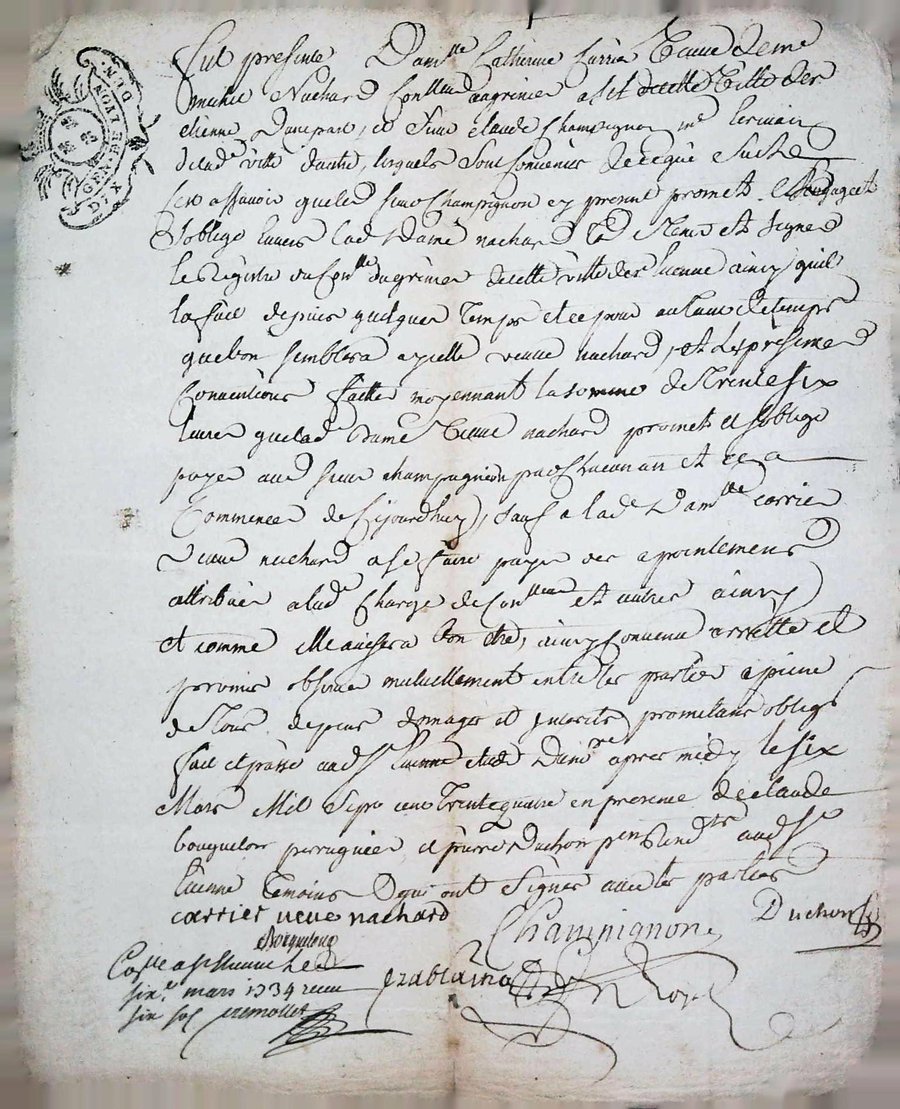 GEN. DE LYON
DIX DEN.
Fut presente Dam.lle Catherine Carrier veuve de me
nachard Con.lleur au grenier a sel de cette ville de St
etienne dune part, et sieur claude Champignon me
de lad. ville dautre, lesquels sont convenus de ce qui suit
scavoir que led sieur Champignon en present promet
soblige envers lad dame nachard de tenir et signer
le Registre du Con.lle du grenier de cette ville de St etienne ainsy quil
la fait depuis quelque temps et ce pour autant de temps
que bon semblera a ycelle veuve nachard, et les presentes
Conventions faittes moyennant la somme de trente six
livres que lad dame veuve nachard promet et soblige
payer aud sieur champagnion par Chacun an et ce a
Commencer de ce jourdhuy, sauf a lad Dam.lle carrier
veuve nachard a se faire payer des apointemens
attribuées a lad Charge de Con.lleur et autres ainsy
et comme elle avisera bon etre, ainsy convenu arretté et
promis observer mutuellement entre les parties a peine
de tous depens domages et interets promettant obligt
fait et passé aud St etienne etude du no.re apres midy le six
Mars Mil Sept cent trente quatre en presence de claude
perruquier, et pierre Duchon pen aud St
etienne temoins qui ont signés avec les parties
carrier veve nachard
Champignon
Duchon
Con.lle a St etienne le
six.e mars 1734 receu
six sol